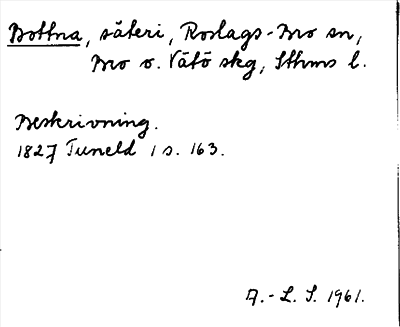 Bottna, säteri, Roslags-Bro sn,
Bro o. Vätö skg, Sthms l.
Beskrivning.
1827 Tuneld 1 s. 163.
A.-L. S. 1961.